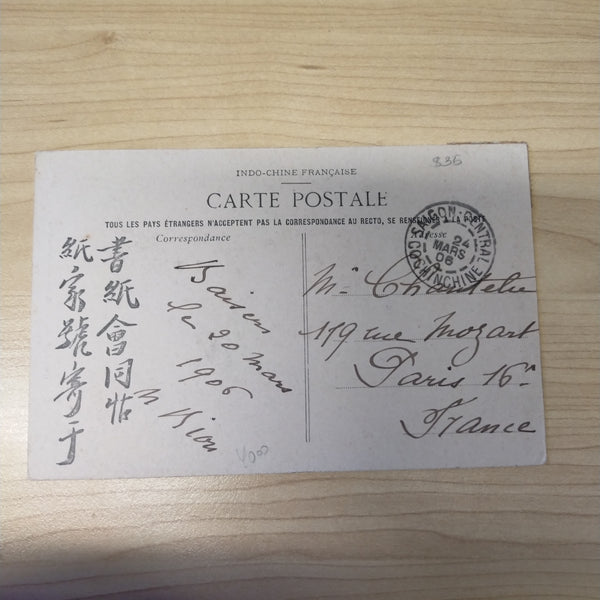 835
INDO-CHINE FRANÇAISE
CARTE POSTALE
TOUS LES PAYS ÉTRANGERS N'ACCEPTENT PAS LA CORRESPONDANCE AU RECTO, SE RENSEIGNER À LA POSTE
Correspondance
Adresse
SAIGON-CENTRAL
24
MARS
06
COCHINCHINE
書紙會同帖
紙家號寄于
Baisers
le 20 mars
1906
119 rue Mozart
Paris 16e
France